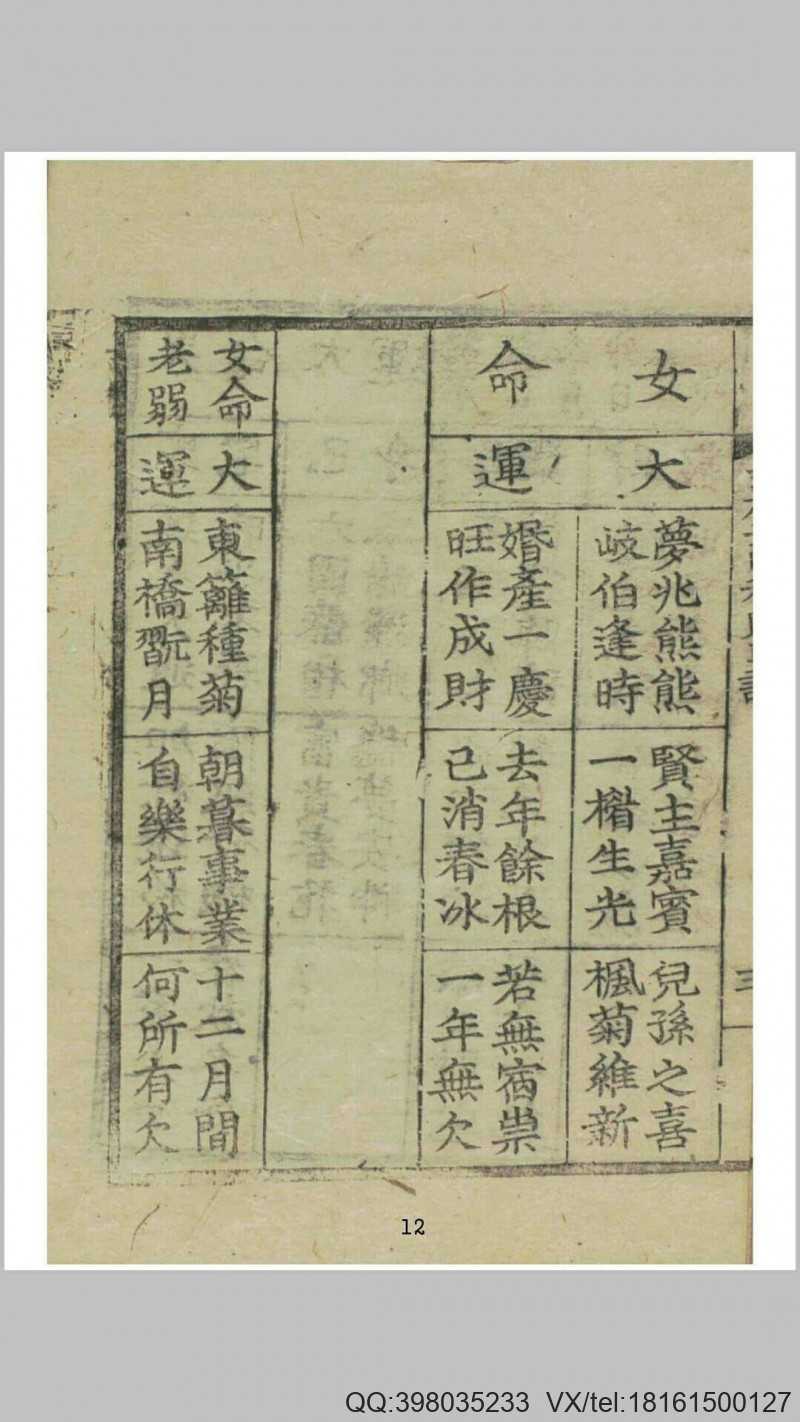 女命
大運
夢兆熊熊
岐伯逢時
賢主嘉賓
一楷生光
兒孫之喜
楓菊維新
婚產一慶
旺作成財
去年餘根
已消春冰
若無宿祟
一年無欠
女命
老弱
大運
東籬種菊
南橋翫月
朝暮事業
自樂行休
十二月間
何所有欠
12
QQ:398035233 VX/tel:18161500127